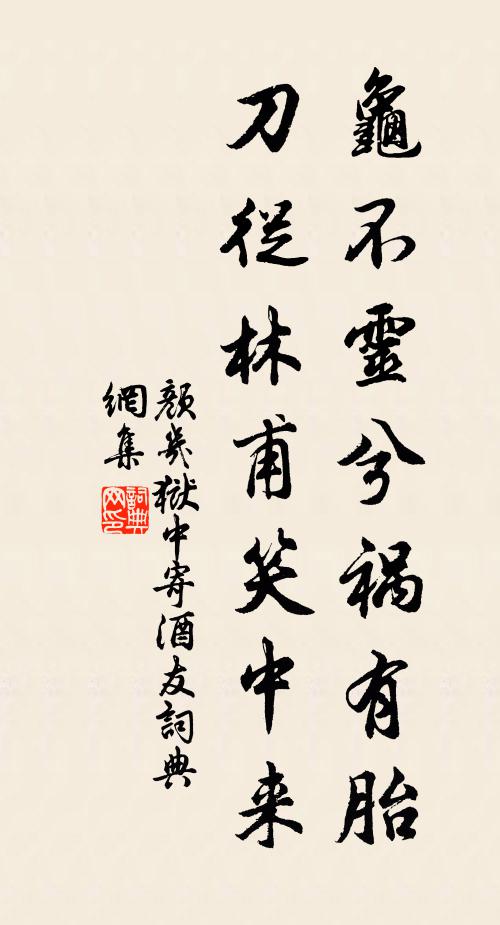 龜不靈兮禍有胎
刀從林甫笑中来
顏幾獄中寄酒友詞典
網集
詞典
网印